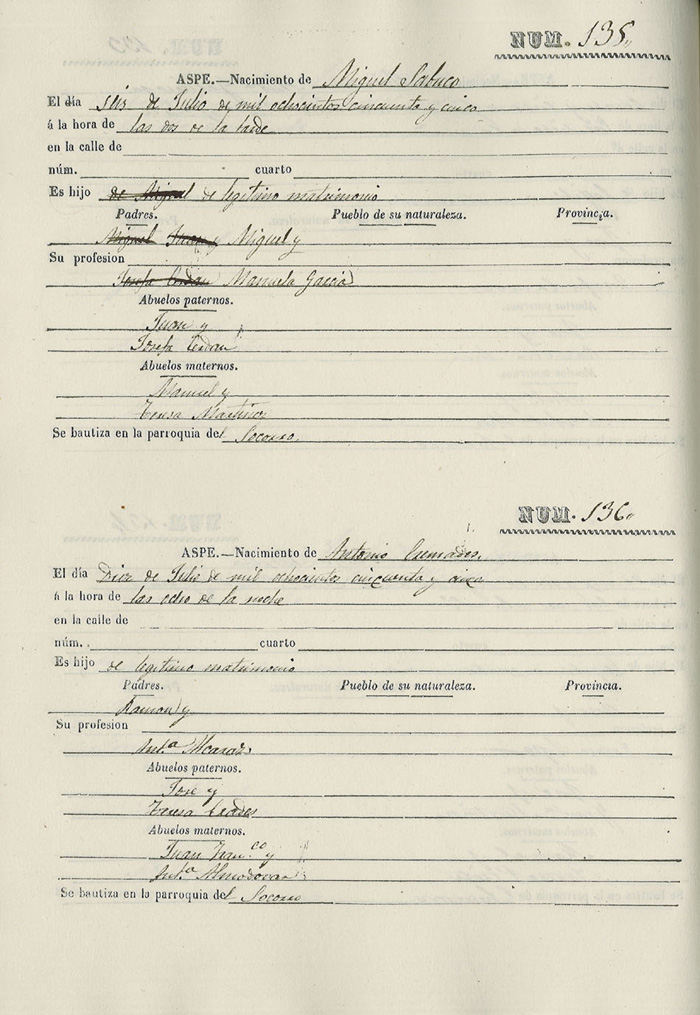 NUM. 135,,
ASPE.—Nacimiento de Miguel Sabuco
El dia seis de Julio de mil ochocientos cincuenta y cinco
á la hora de las dos de la tarde
en la calle de
núm. cuarto
Es hijo de Miguel de legitimo matrimonio
Padres. Pueblo de su naturaleza. Provincia.
Miguel Juan y Miguel y
Su profesion
Josefa Cerdan Manuela Garcia
Abuelos paternos.
Juan y
Josefa Cerdan
Abuelos maternos.
Manuel y
Teresa Martinez
Se bautiza en la parroquia del Socorro.
NUM. 136,,
ASPE.—Nacimiento de Antonio
El día Diez de Julio de mil ochocientos cincuenta y cinco
á la hora de las ocho de la noche
en la calle de
núm. cuarto
Es hijo de legitimo matrimonio
Padres. Pueblo de su naturaleza. Provincia.
Ramon y
Su profesion
Antª Alcaraz
Abuelos paternos.
Jose y
Teresa
Abuelos maternos.
Juan Franco y
Antª Almodovar
Se bautiza en la parroquia del Socorro